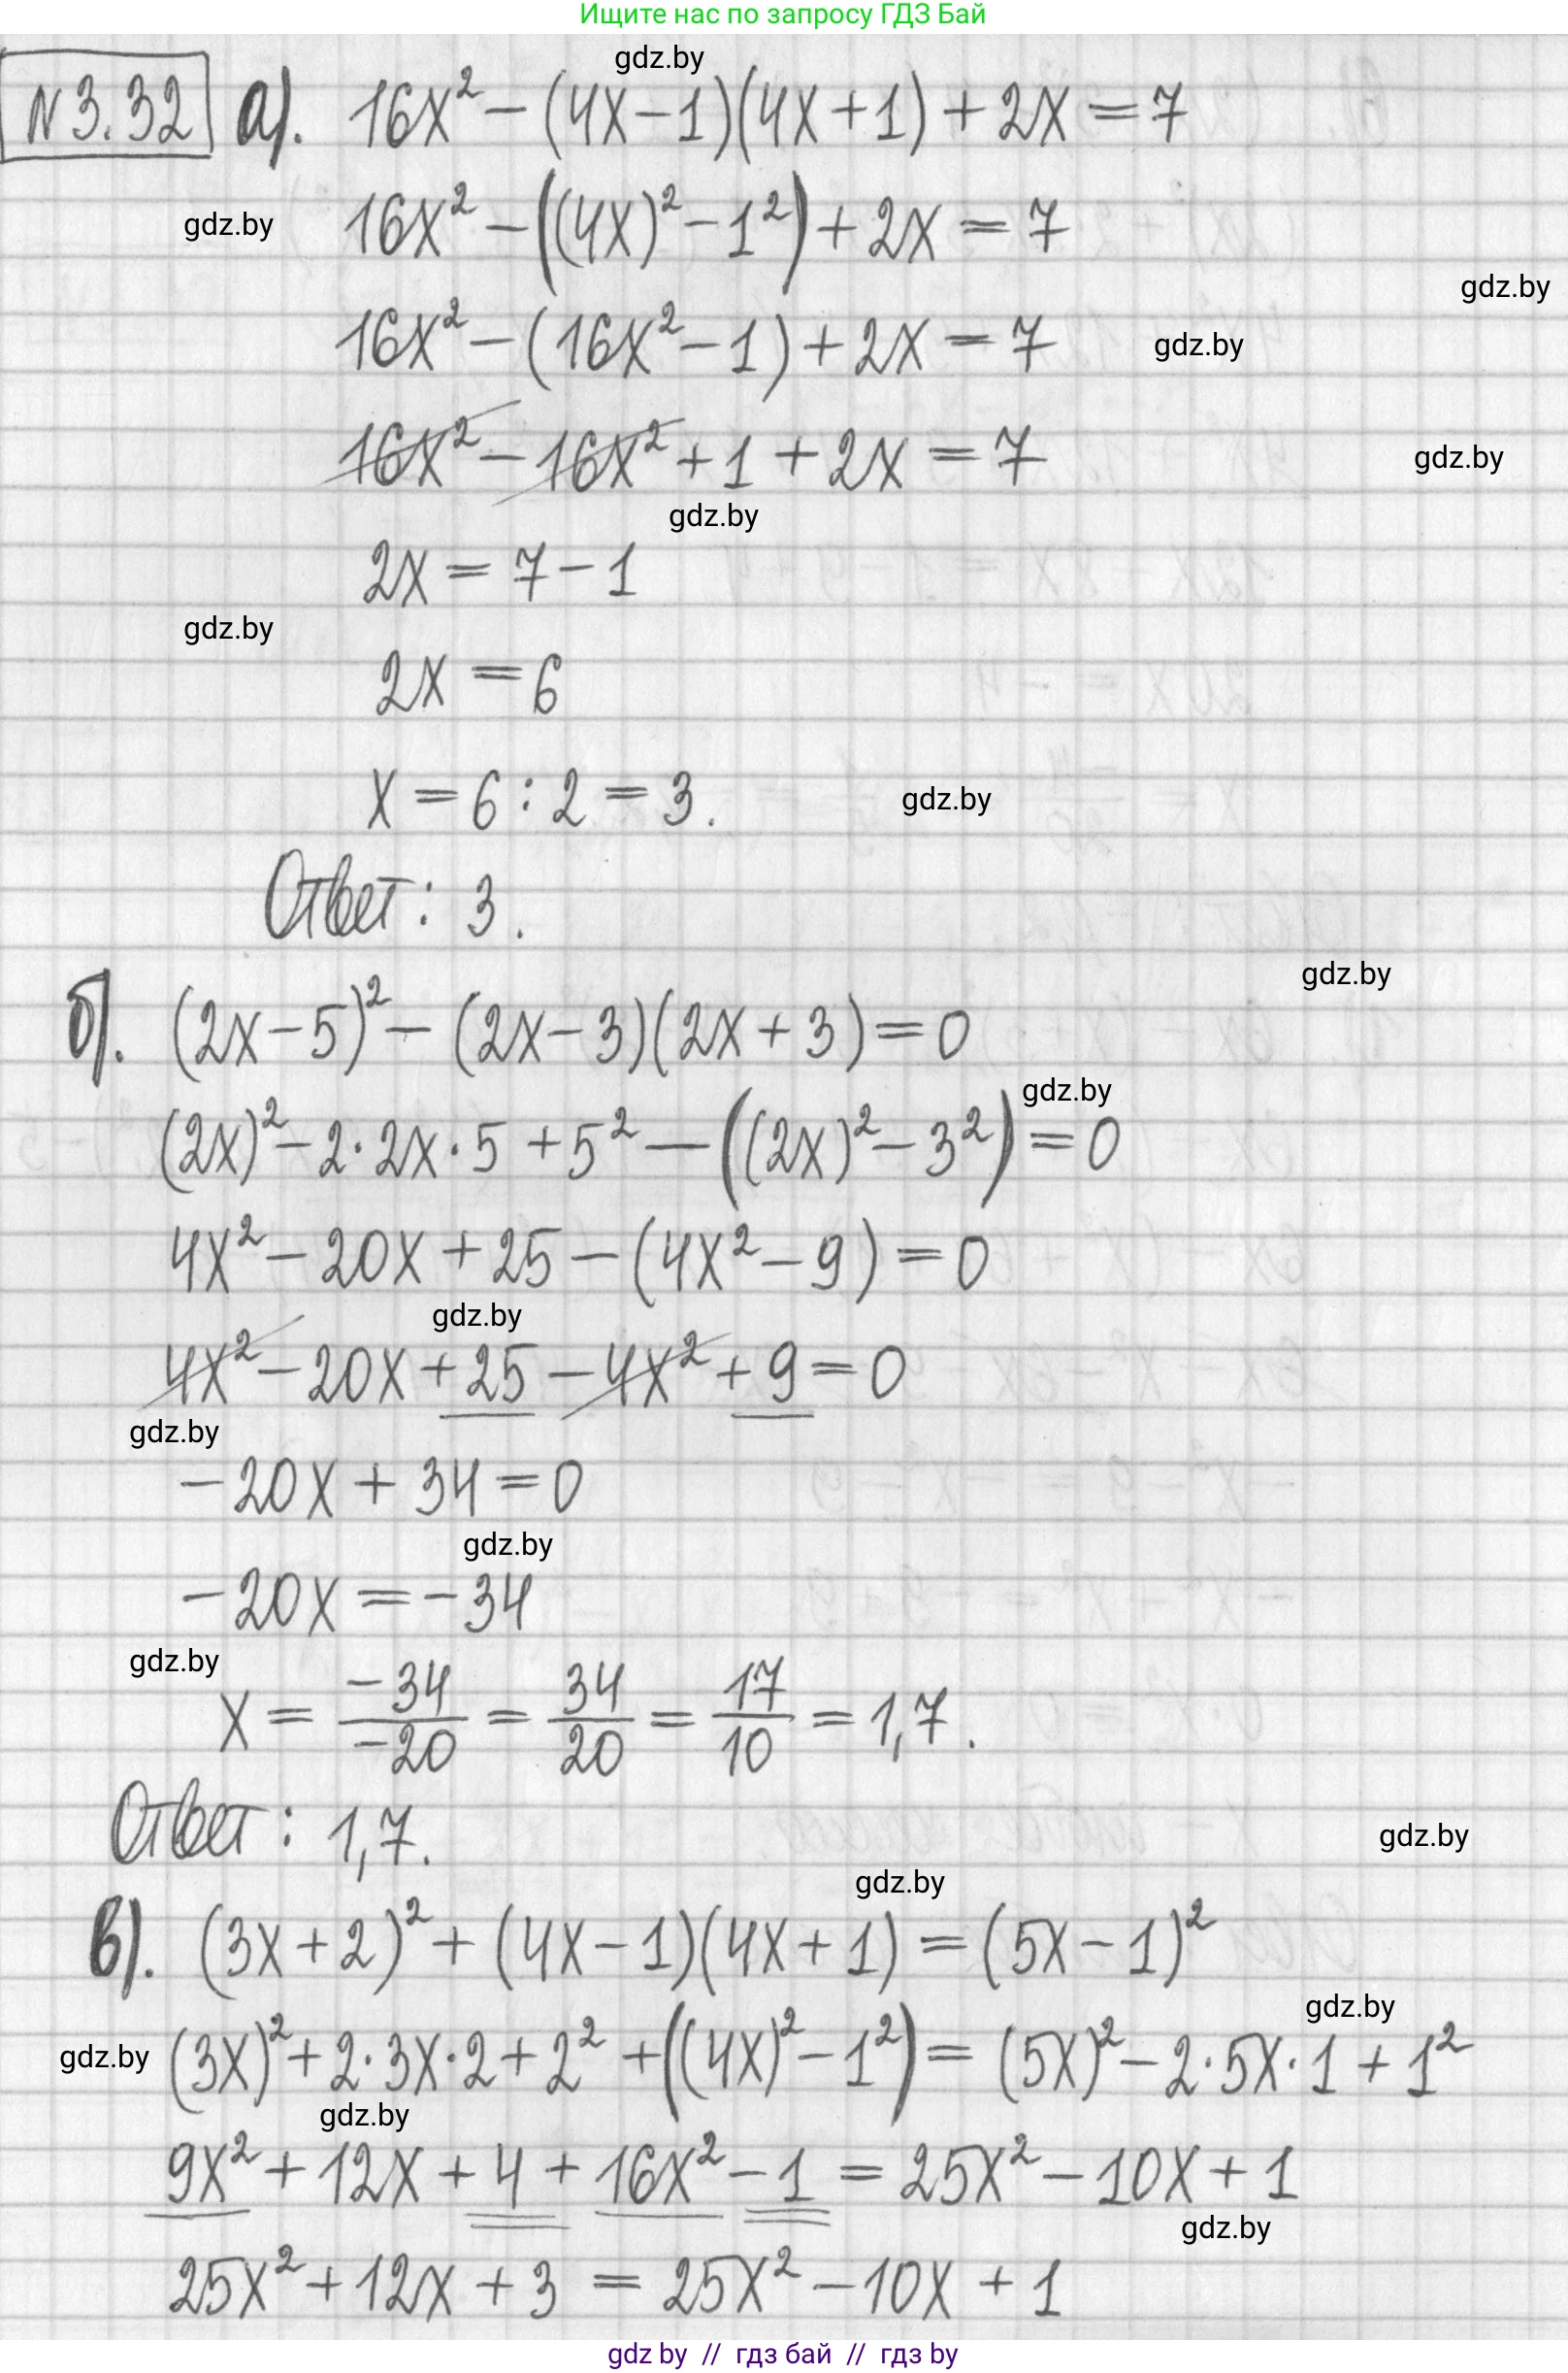 Ищите нас по запросу ГДЗ Бай
gdz.by
N 3.32 а). 16x² - (4x - 1)(4x + 1) + 2x = 7
gdz.by
16x² - ((4x)² - 1²) + 2x = 7
gdz.by
16x² - (16x² - 1) + 2x = 7
gdz.by
16x² - 16x² + 1 + 2x = 7
gdz.by
gdz.by
2x = 7 - 1
gdz.by
2x = 6
x = 6 : 2 = 3.
gdz.by
Ответ: 3.
gdz.by
б). (2x - 5)² - (2x - 3)(2x + 3) = 0
gdz.by
(2x)² - 2·2x·5 + 5² - ((2x)² - 3²) = 0
4x² - 20x + 25 - (4x² - 9) = 0
gdz.by
4x² - 20x + 25 - 4x² + 9 = 0
gdz.by
-20x + 34 = 0
gdz.by
-20x = -34
gdz.by
x = -34/-20 = 34/20 = 17/10 = 1,7.
Ответ: 1,7.
gdz.by
gdz.by
в). (3x + 2)² + (4x - 1)(4x + 1) = (5x - 1)²
gdz.by
gdz.by
(3x)² + 2·3x·2 + 2² + ((4x)² - 1²) = (5x)² - 2·5x·1 + 1²
gdz.by
9x² + 12x + 4 + 16x² - 1 = 25x² - 10x + 1
gdz.by
25x² + 12x + 3 = 25x² - 10x + 1
gdz by // гдз бай // гдз by